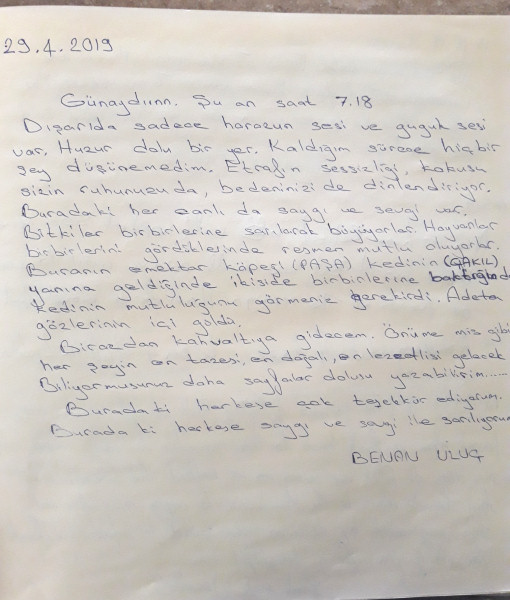 29.4.2019
Günaydıınn. Şu an saat 7.18
Dışarıda sadece horozun sesi ve guguk sesi
var. Huzur dolu bir yer. Kaldığım sürece hiçbir
şey düşünemedim. Etrafın sessizliği, kokusu
sizin ruhunuzuda, bedeninizi de dinlendiriyor.
Buradaki her canlı da saygı ve sevgi var.
Bitkiler birbirlerine sarılarak büyüyorlar. Hayvanlar
birbirlerini gördüklerinde resmen mutlu oluyorlar.
Buranın emektar köpeği (PAŞA) kedinin (ÇAKIL)
yanına geldiğinde ikiside birbirlerine baktığında
kedinin mutluluğunu görmeniz gerekirdi. Adeta
gözlerinin içi güldü.
Birazdan kahvaltıya gidecem. Önüme mis gibi
her şeyin en tazesi, en doğalı, en lezzetlisi gelecek
Biliyormusunuz daha sayfalar dolusu yazabilirim......
Buradaki herkese çok teşekkür ediyorum.
Burada ki herkese saygı ve sevgi ile sarılıyorum
BENAN ULUÇ